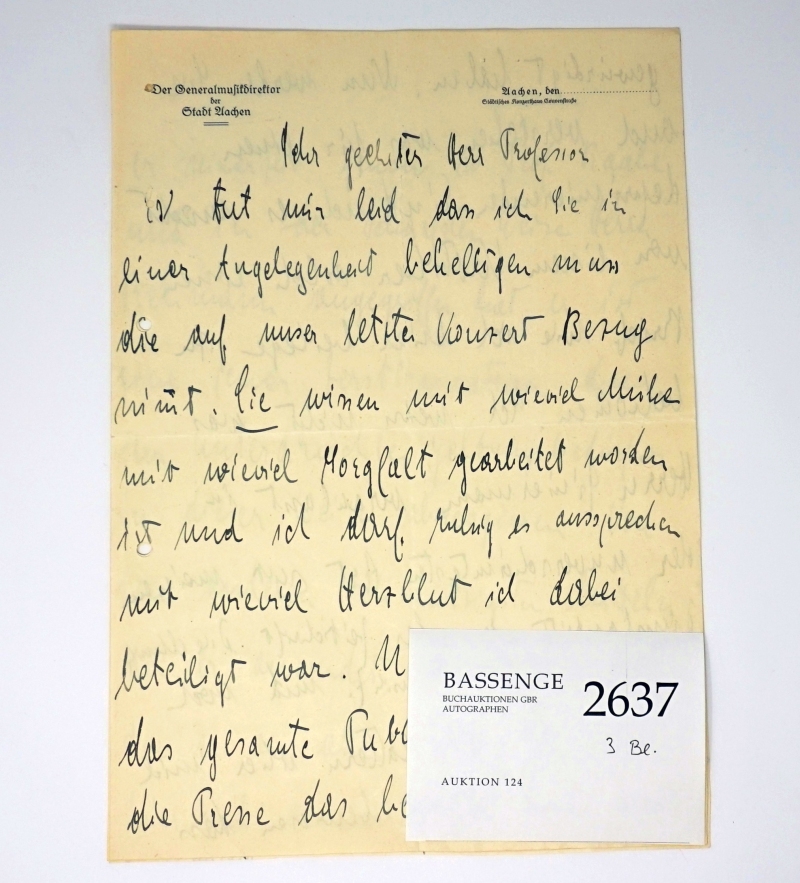 Der Generalmusikdirektor
der
Stadt Aachen
Aachen, den
Städtisches Konzerthaus Comnenstraße
Sehr geehrter Herr Professor
es tut mir leid dass ich Sie in
einer Angelegenheit behelligen muss
die auf unser letztes Konzert Bezug
nimmt. Sie wissen mit wieviel Mühe
mit wieviel Sorgfalt gearbeitet worden
ist und ich darf ruhig es aussprechen
mit wieviel Herzblut ich dabei
beteiligt war.
das gesamte Publ
die Presse das be
BASSENGE
BUCHAUKTIONEN GBR
AUTOGRAPHEN
2637
3 Be.
AUKTION 124